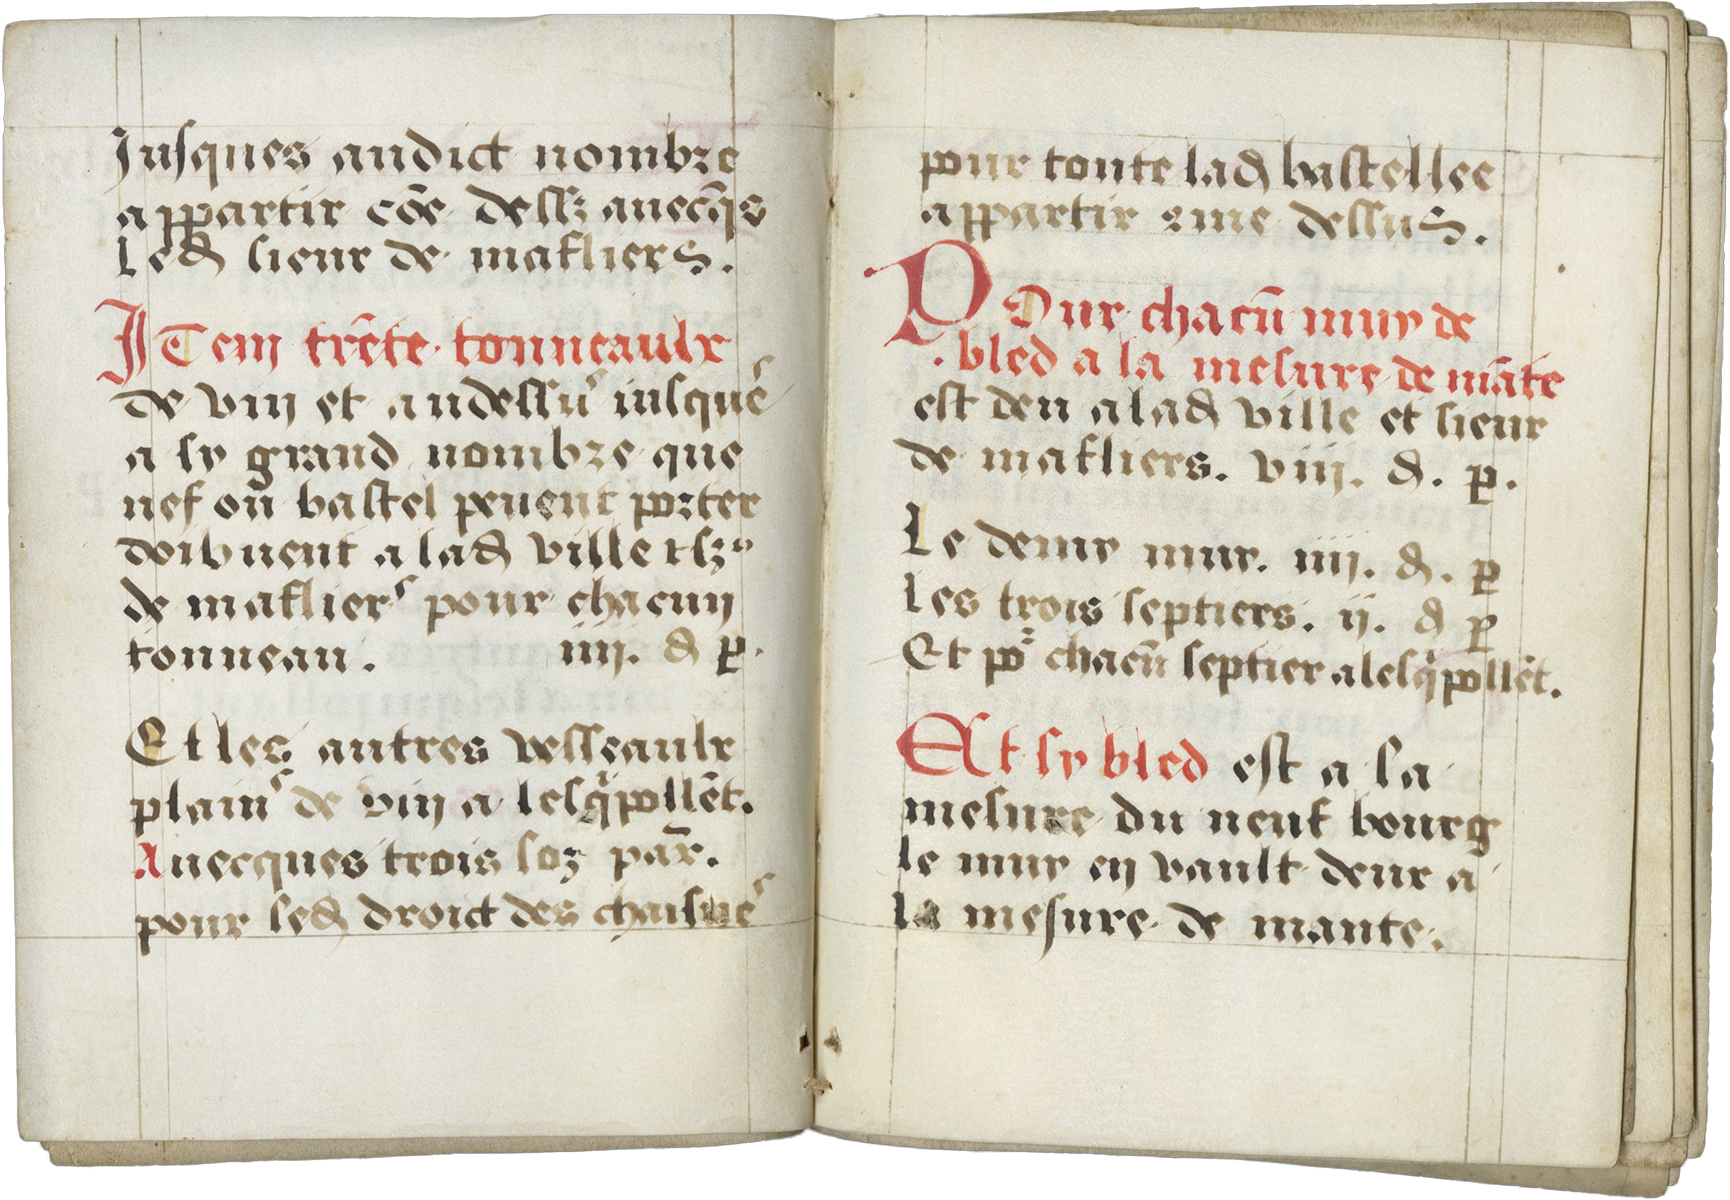 Jusques audict nombre
appartir cōe dessꝫ auecq̄s
Led sieur de mafliers.
ITem trēte tonneaulx
de vin et audessus iusques
a sy grand nombre que
nef ou bastel peuent porter
doibuent a lad ville
de mafliers pour chacun
tonneau. iiii. d p.
Et les autres vesseaulx
plains de vin a lesq̄pollēt.
Auecques trois solz par.
pour led droict des chaisnes
pour toute lad bastellee
appartir 9me dessus.
POur chacū muy de
.bled a la mesure de māte
est deu a lad ville et sieur
de mafliers. viii. d. p.
Le demy muy. iiii. d. p
Les trois septiers. ii. d p
Et po᷑ chacū septier a lesq̄pollēt.
Et sy bled est a la
mesure du neuf bourg
le muy en vault deux a
la mesure de mante.